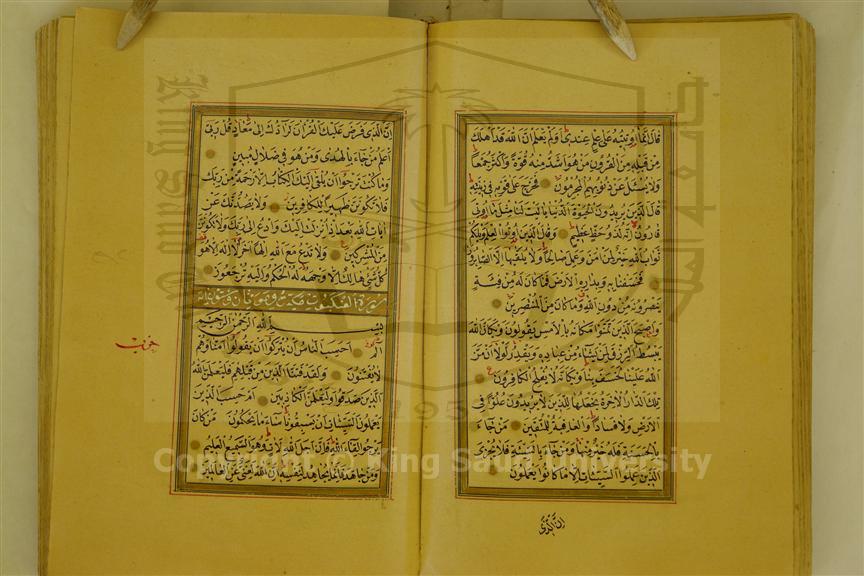 قال انما اوتيته على علم عندي اولم يعلم ان الله قد اهلك
من قبله من القرون من هو اشد منه قوة واكثر جمعا
ولا يسئل عن ذنوبهم المجرمون فخرج على قومه في زينته
قال الذين يريدون الحيوة الدنيا يا ليت لنا مثل ما اوتي
قارون انه لذو حظ عظيم وقال الذين اوتوا العلم ويلكم
ثواب الله خير لمن امن وعمل صالحا ولا يلقيها الا الصابرون
فخسفنا به وبداره الارض فما كان له من فئة
ينصرونه من دون الله وما كان من المنتصرين
واصبح الذين تمنوا مكانه بالامس يقولون ويكان الله
يبسط الرزق لمن يشاء من عباده ويقدر لولا ان من
الله علينا لخسف بنا ويكانه لا يفلح الكافرون
تلك الدار الاخرة نجعلها للذين لا يريدون علوا في
الارض ولا فسادا والعاقبة للمتقين من جاء
بالحسنة فله خير منها ومن جاء بالسيئة فلا يجزى
الذين عملوا السيئات الا ما كانوا يعملون
ان الذي
ان الذي فرض عليك القران لرادك الى معاد قل ربي
اعلم من جاء بالهدى ومن هو في ضلال مبين
وما كنت ترجوا ان يلقى اليك الكتاب الا رحمة من ربك
فلا تكونن ظهيرا للكافرين ولا يصدنك عن
ايات الله بعد اذ انزلت اليك وادع الى ربك ولا تكونن
من المشركين ولا تدع مع الله الها اخر لا اله الا هو
كل شيء هالك الا وجهه له الحكم واليه ترجعون
سورة العنكبوت مكية وهي
بسم الله الرحمن الرحيم
الم احسب الناس ان يتركوا ان يقولوا امنا وهم
لا يفتنون ولقد فتنا الذين من قبلهم فليعلمن الله
الذين صدقوا وليعلمن الكاذبين ام حسب الذين
يعملون السيئات ان يسبقونا ساء ما يحكمون من كان
يرجوا لقاء الله فان اجل الله لات وهو السميع العليم
ومن جاهد فانما يجاهد لنفسه ان الله لغني عن العالمين
حزب
Copyright © King Saud University